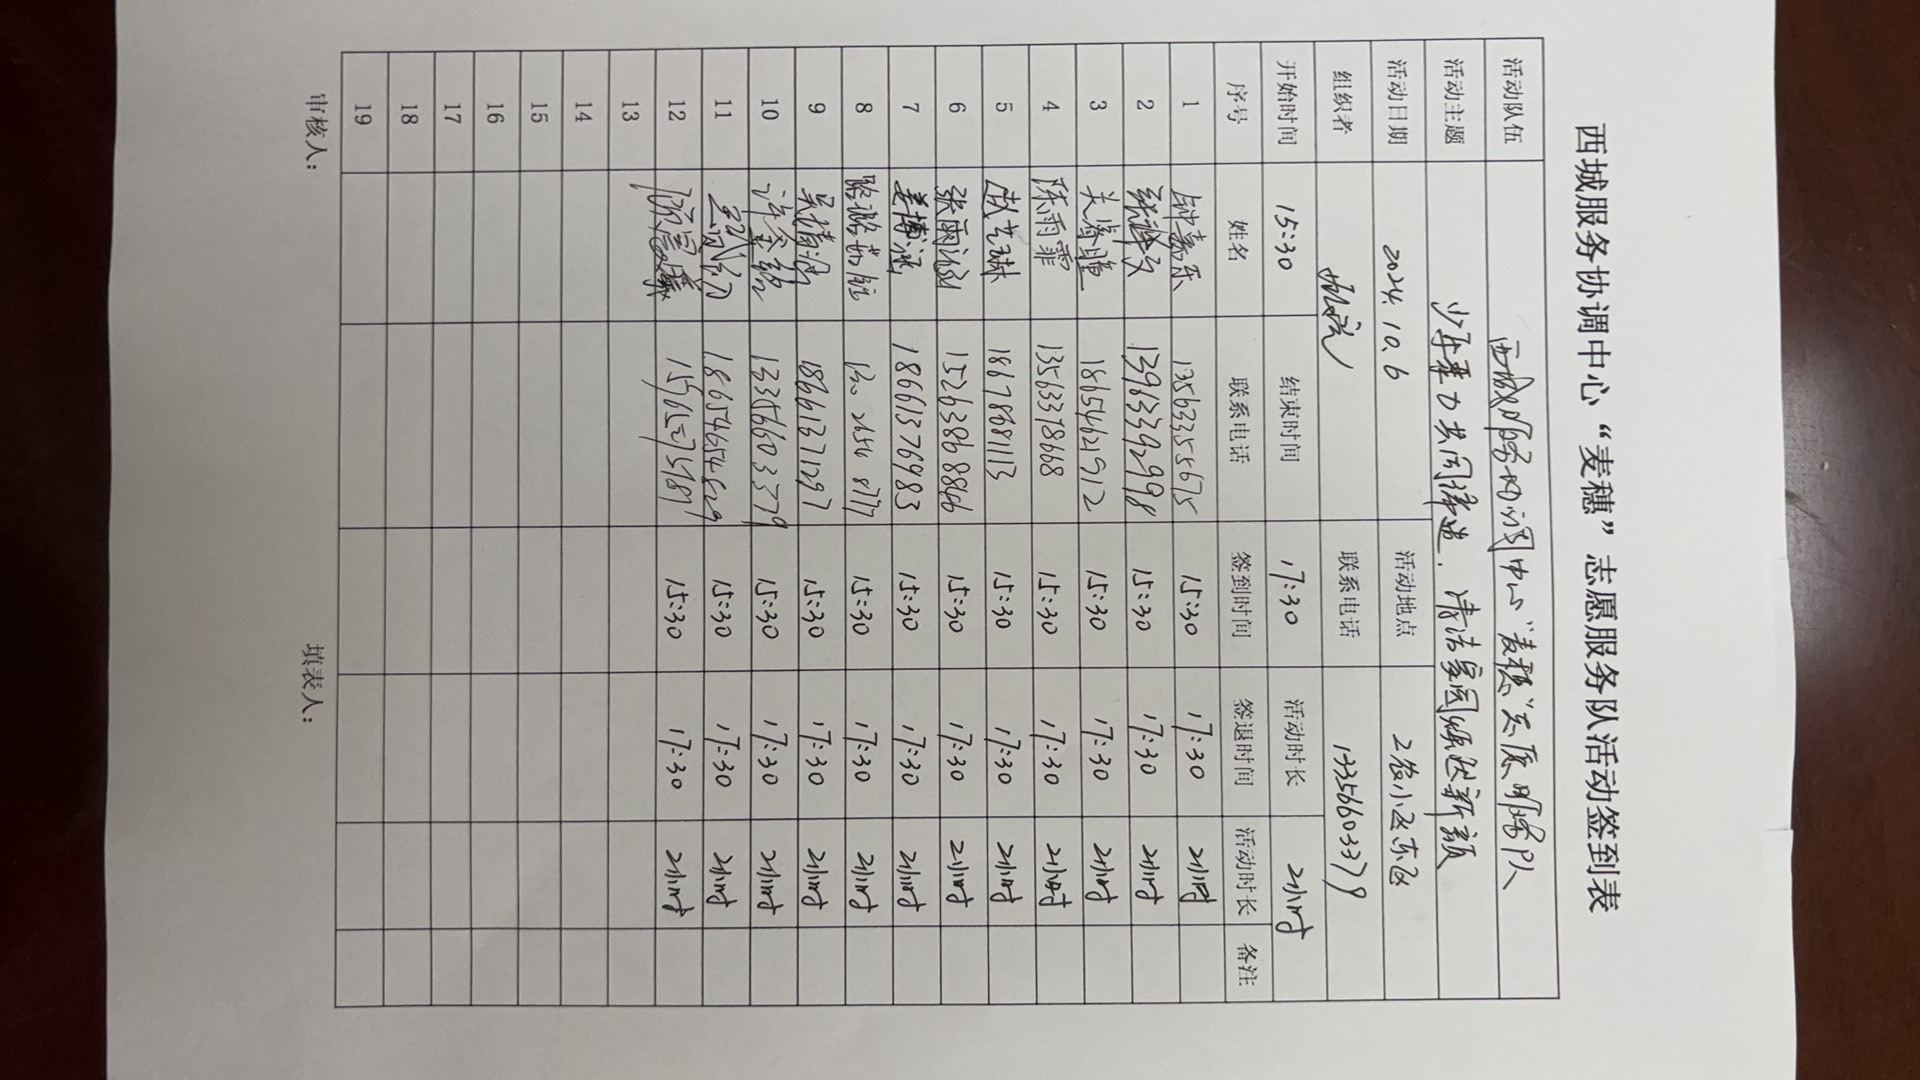 西城服务协调中心“麦穗”志愿服务队活动签到表
活动队伍 西城服务协调中心“麦穗”志愿服务队
活动主题 少年聚力共同缔造.清洁家园焕然新颜
活动日期 2024.10.6 活动地点 2宿小区东区
组织者 联系电话 13356603379
开始时间 15:30 结束时间 17:30 活动时长 2小时
序号 姓名 联系电话 签到时间 签退时间 活动时长 备注
1 钟嘉乐 13563355675 15:30 17:30 2小时
2 13913392998 15:30 17:30 2小时
3 18654621912 15:30 17:30 2小时
4 陈雨霏 13563378668 15:30 17:30 2小时
5 赵艺琳 18678681113 15:30 17:30 2小时
6 张雨涵 15263868866 15:30 17:30 2小时
7 姜博涵 18661376983 15:30 17:30 2小时
8 15:30 17:30 2小时
9 吴清源 18661371297 15:30 17:30 2小时
10 13356603379 15:30 17:30 2小时
11 18654654829 15:30 17:30 2小时
12 15:30 17:30 2小时
13
14
15
16
17
18
19
审核人： 填表人：